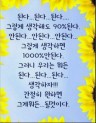 된다...된다...된다...
그렇게 생각해도 90%된다.
안된다...안된다...안된다...
그렇게 생각하면
1000%안된다.
그러니 우리는 뭐든
된다...된다...된다...
생각하자!!!
간절히 원하면
그게뭐든...될것이다.